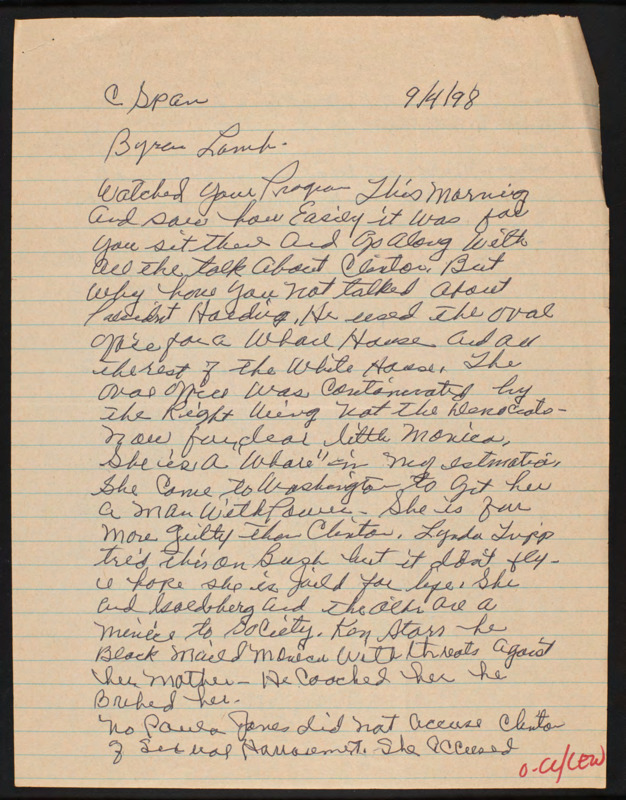 C Span 9/4/98
Byren Lamb.
Watched your Program This Morning
And saw how Easily it was for
you sit there And Go Along With
all the talk About Clinton. But
Why have you not talked about
President Harding. He used the oval
office for a Whore House and all
the rest of the White House. The
oval office was Contaminated by
the Right Wing not the Democrats-
Now for, dear little Monica,
She is A "Whore" in my estmation,
She Come to Washington to Get her
a Man With Power- She is far
More Guilty than Clinton. Lynda Tripp
tred this on Bush but it don't fly-
I hope she is jaild for life. She
and Goldberg and the others are a
menice to Society. Ken Starr- he
Black Maild Monica With threats Agaist
her Mother- He Coached her he
Bribed her.
No Paula Jones did not accuse Clinton
of Sexual Harrassment. She Accused
O-CI/LEW